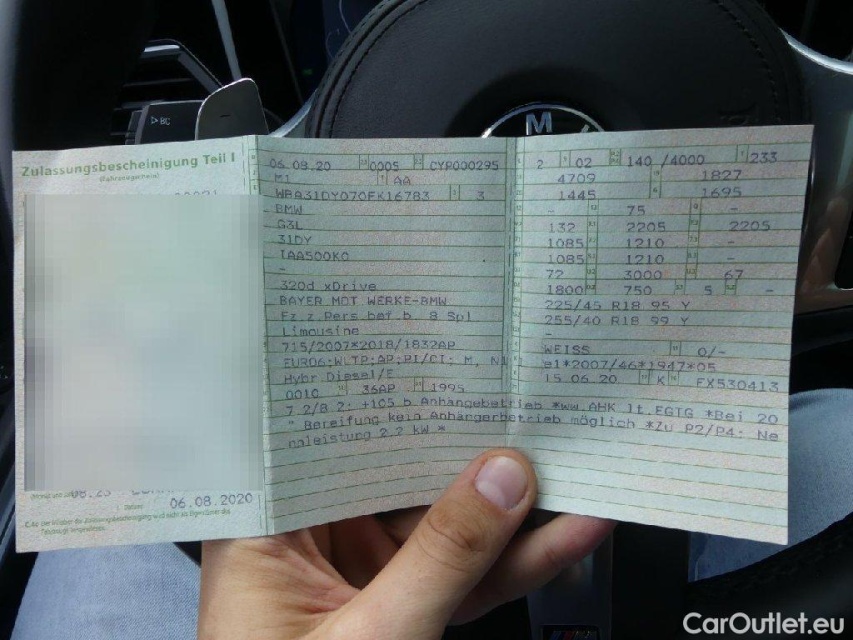 BC
M
Zulassungsbescheinigung Teil I
(Fahrzeugschein)
06.08.20 0005 CYP000295
M1 AA
3
BMW
G3L
31DY
IAA500K0
-
320d xDrive
BAYER MOT WERKE-BMW
Fz z Pers bef b 8 Spl
Limousine
715/2007*2018/1832AP
EURO6;WLTP;AP;PI/CI; M, N1
Hybr Diesel/E
0010 36AP 1995
2 02 140 /4000 233
4709 1827
1445 1695
- 75 -
132 2205 2205
1085 1210 -
1085 1210 -
72 3000 67
1800 750 5 -
225/45 R18 95 Y
255/40 R18 99 Y
-
WEISS 0/-
e1*2007/46*1947*05
15.06.20 K FX530413
7.2/8.2: +105 b Anhängebetrieb *ww.AHK lt.EGTG *Bei 20
" Bereifung kein Anhängerbetrieb möglich *Zu P2/P4: Ne
nnleistung 2,2 kW *
06.08.2020
CarOutlet.eu